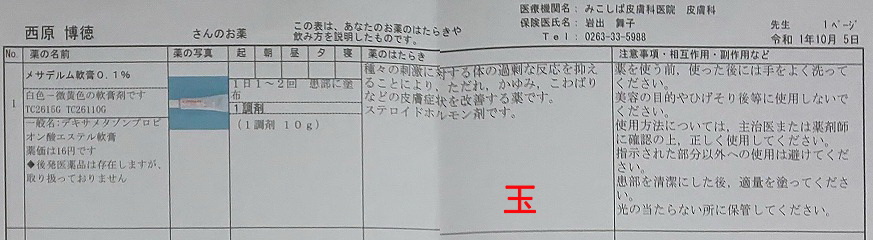 医療機関名：みこしば皮膚科医院 皮膚科
保険医氏名：岩出 舞子 先生 1ページ
Tel：0263-33-5988 令和 1年10月 5日
西原 博徳 さんのお薬
この表は、あなたのお薬のはたらきや
飲み方を説明したものです。
No. 薬の名前 薬の写真 起 朝 昼 夕 寝 薬のはたらき 注意事項・相互作用・副作用など
1
メサデルム軟膏0.1%
白色～微黄色の軟膏剤です
TC2615G TC26110G
一般名：デキサメタゾンプロピ
オン酸エステル軟膏
薬価は16円です
◆後発医薬品は存在しますが、
取り扱っておりません
1日1～2回 患部に塗
布
1調剤
（1調剤 10g）
種々の刺激に対する体の過剰な反応を抑え
ることにより、ただれ、かゆみ、こわばり
などの皮膚症状を改善する薬です。
ステロイドホルモン剤です。
玉
薬を使う前、使った後には手をよく洗って
ください。
美容の目的やひげそり後等に使用しないで
ください。
使用方法については、主治医または薬剤師
に確認の上、正しく使用してください。
指示された部分以外への使用は避けてくだ
さい。
患部を清潔にした後、適量を塗ってくださ
い。
光の当たらない所に保管してください。